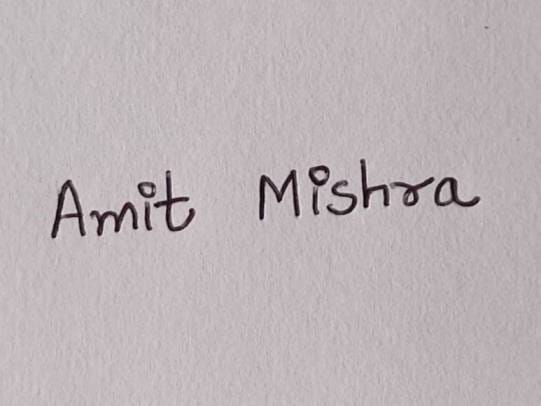 Amit Mishra